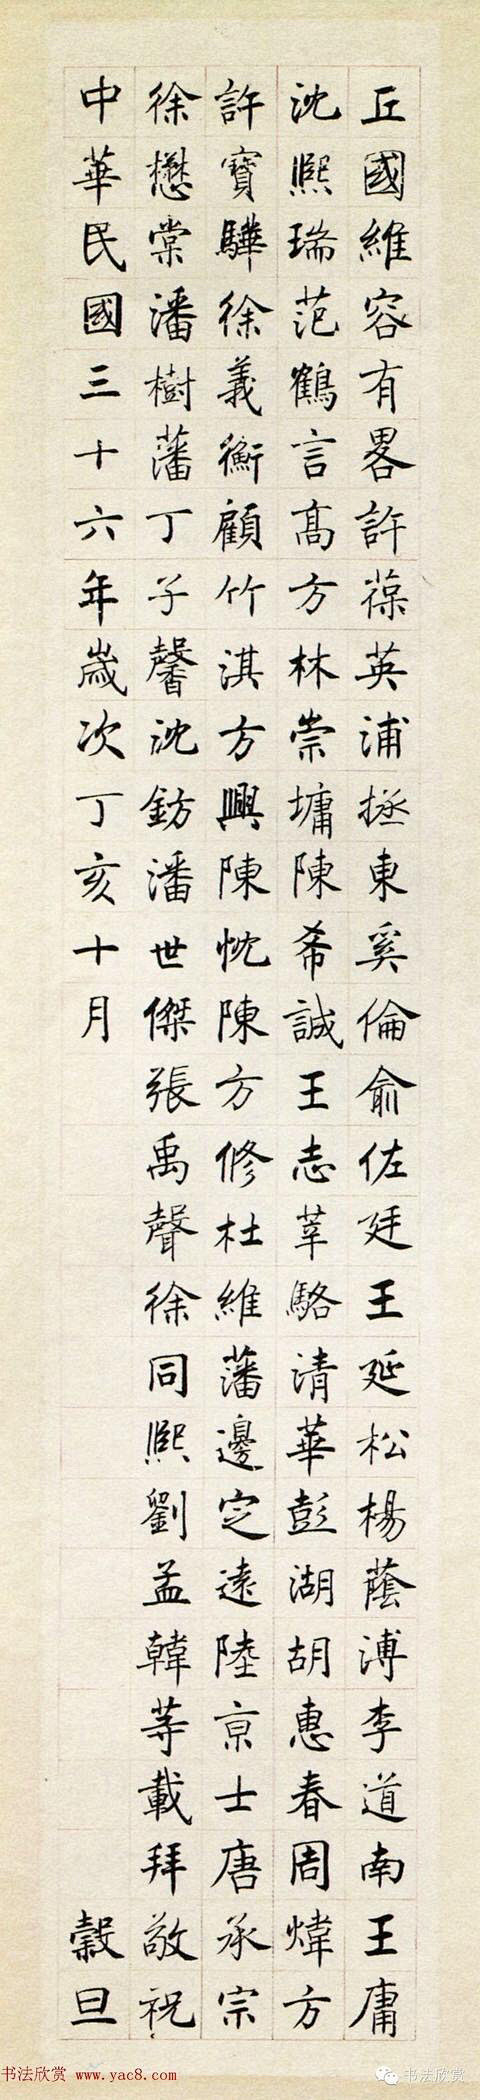 丘國維容有畧許葆英浦拯東奚倫俞佐廷王延松楊蔭溥李道南王庸
沈熙瑞范鶴言高方林崇墉陳希誠王志莘駱清華彭湖胡惠春周煒方
許寶驊徐義衡顧竹淇方興陳忱陳方修杜維藩邊定遠陸京士唐承宗
徐懋棠潘樹藩丁子馨沈鈁潘世傑張禹聲徐同熙劉孟韓等載拜敬祝
中華民國三十六年歲次丁亥十月 穀旦
书法欣赏 www.yac8.com
书法欣赏